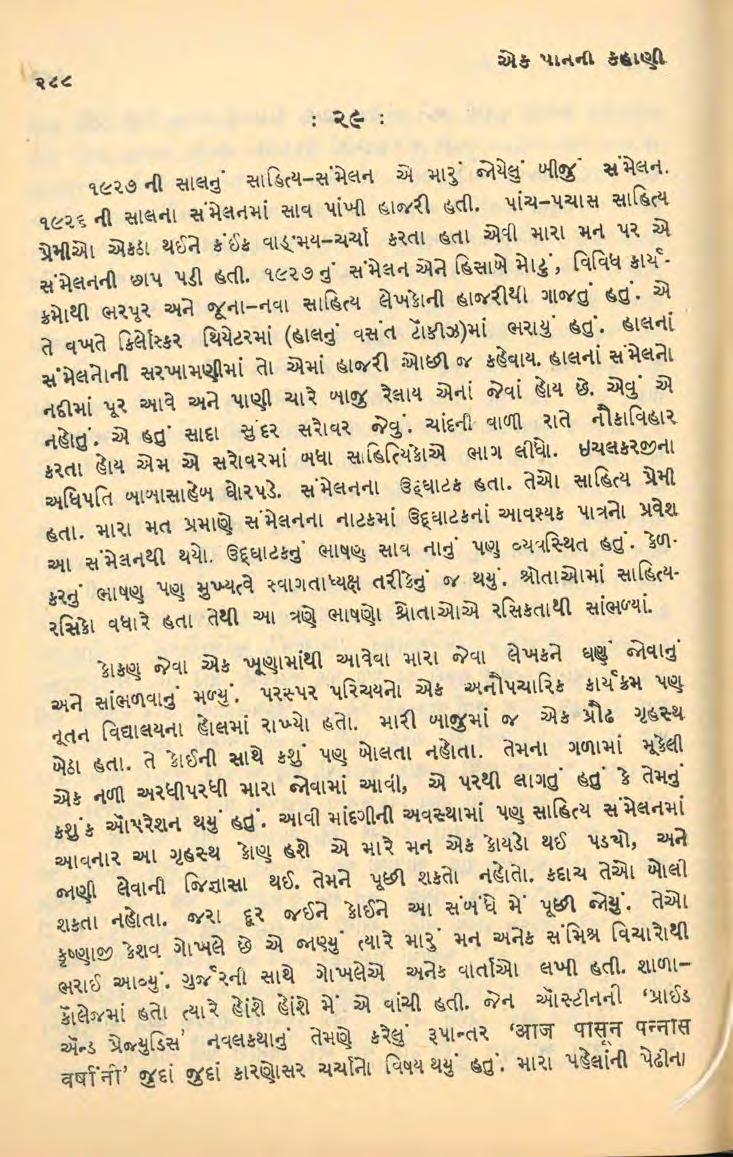 એક પાનની કહાણી
૨૮૮
: ૨૯ :
૧૯૨૭ ની સાલનું સાહિત્ય-સંમેલન એ મારું જોયેલું બીજું સંમેલન.
૧૯૨૬ ની સાલના સંમેલનમાં સાવ પાંખી હાજરી હતી. પાંચ-પચાસ સાહિત્ય
પ્રેમીઓ એકઠા થઈને કંઈક વાઙ્મય-ચર્ચા કરતા હતા એવી મારા મન પર એ
સંમેલનની છાપ પડી હતી. ૧૯૨૭ નું સંમેલન એને હિસાબે મોટું, વિવિધ કાર્ય-
ક્રમોથી ભરપૂર અને જૂના-નવા સાહિત્ય લેખકોની હાજરીથી ગાજતું હતું. એ
તે વખતે કિર્લોસ્કર થિયેટરમાં (હાલનું વસંત ટૉકીઝ)માં ભરાયું હતું. હાલનાં
સંમેલનોની સરખામણીમાં તો એમાં હાજરી ઓછી જ કહેવાય. હાલનાં સંમેલનો
નદીમાં પૂર આવે અને પાણી ચારે બાજુ રેલાય એનાં જેવાં હોય છે. એવું એ
નહોતું. એ હતું સાદા સુંદર સરોવર જેવું. ચાંદની વાળી રાતે નૌકાવિહાર
કરતા હોય એમ એ સરોવરમાં બધા સાહિત્યિકોએ ભાગ લીધો. ઇચલકરજીના
અધિપતિ બાબાસાહેબ ઘોરપડે. સંમેલનના ઉદ્ઘાટક હતા. તેઓ સાહિત્ય પ્રેમી
હતા. મારા મત પ્રમાણે સંમેલનના નાટકમાં ઉદ્ઘાટકનાં આવશ્યક પાત્રનો પ્રવેશ
આ સંમેલનથી થયો. ઉદ્ઘાટકનું ભાષણ સાવ નાનું પણ વ્યવસ્થિત હતું. કેળ-
કરનું ભાષણ પણ મુખ્યત્વે સ્વાગતાધ્યક્ષ તરીકેનું જ થયું. શ્રોતાઓમાં સાહિત્ય-
રસિકો વધારે હતા તેથી આ ત્રણે ભાષણો શ્રોતાઓએ રસિકતાથી સાંભળ્યાં.
કોકણ જેવા એક ખૂણામાંથી આવેવા મારા જેવા લેખકને ઘણું જોવાનું
અને સાંભળવાનું મળ્યું. પરસ્પર પરિચયનો એક અનૌપચારિક કાર્યક્રમ પણ
નૂતન વિદ્યાલયના હોલમાં રાખ્યો હતો. મારી બાજુમાં જ એક પ્રૌઢ ગૃહસ્થ
બેઠા હતા. તે કોઈની સાથે કશું પણ બોલતા નહોતા. તેમના ગળામાં મૂકેલી
એક નળી અરધીપરધી મારા જોવામાં આવી, એ પરથી લાગતું હતું કે તેમનું
કશુંક ઑપરેશન થયું હતું. આવી માંદગીની અવસ્થામાં પણ સાહિત્ય સંમેલનમાં
આવનાર આ ગૃહસ્થ કોણ હશે એ મારે મન એક કોયડો થઈ પડયો, અને
જાણી લેવાની જિજ્ઞાસા થઈ. તેમને પૂછી શકતો નહોતો. કદાચ તેઓ બોલી
શકતા નહોતા. જરા દૂર જઈને કોઈને આ સંબંધે મેં પૂછી જોયું. તેઓ
કૃષ્ણાજી કેશવ ગોખલે છે એ જાણ્યું ત્યારે મારું મન અનેક સંમિશ્ર વિચારોથી
ભરાઈ આવ્યું. ગુર્જરની સાથે ગોખલેએ અનેક વાર્તાઓ લખી હતી. શાળા-
કૉલેજમાં હતો ત્યારે હોંશે હોંશે મેં એ વાંચી હતી. જેન ઑસ્ટીનની ‘પ્રાઈડ
ઍન્ડ પ્રેજ્યુડિસ’ નવલકથાનું તેમણે કરેલું રૂપાન્તર ‘આજ पासून पन्नास
વર્ષાંની’ જુદાં જુદાં કારણોસર ચર્ચાનો વિષય થયું હતું. મારા પહેલાંની પેઢીના